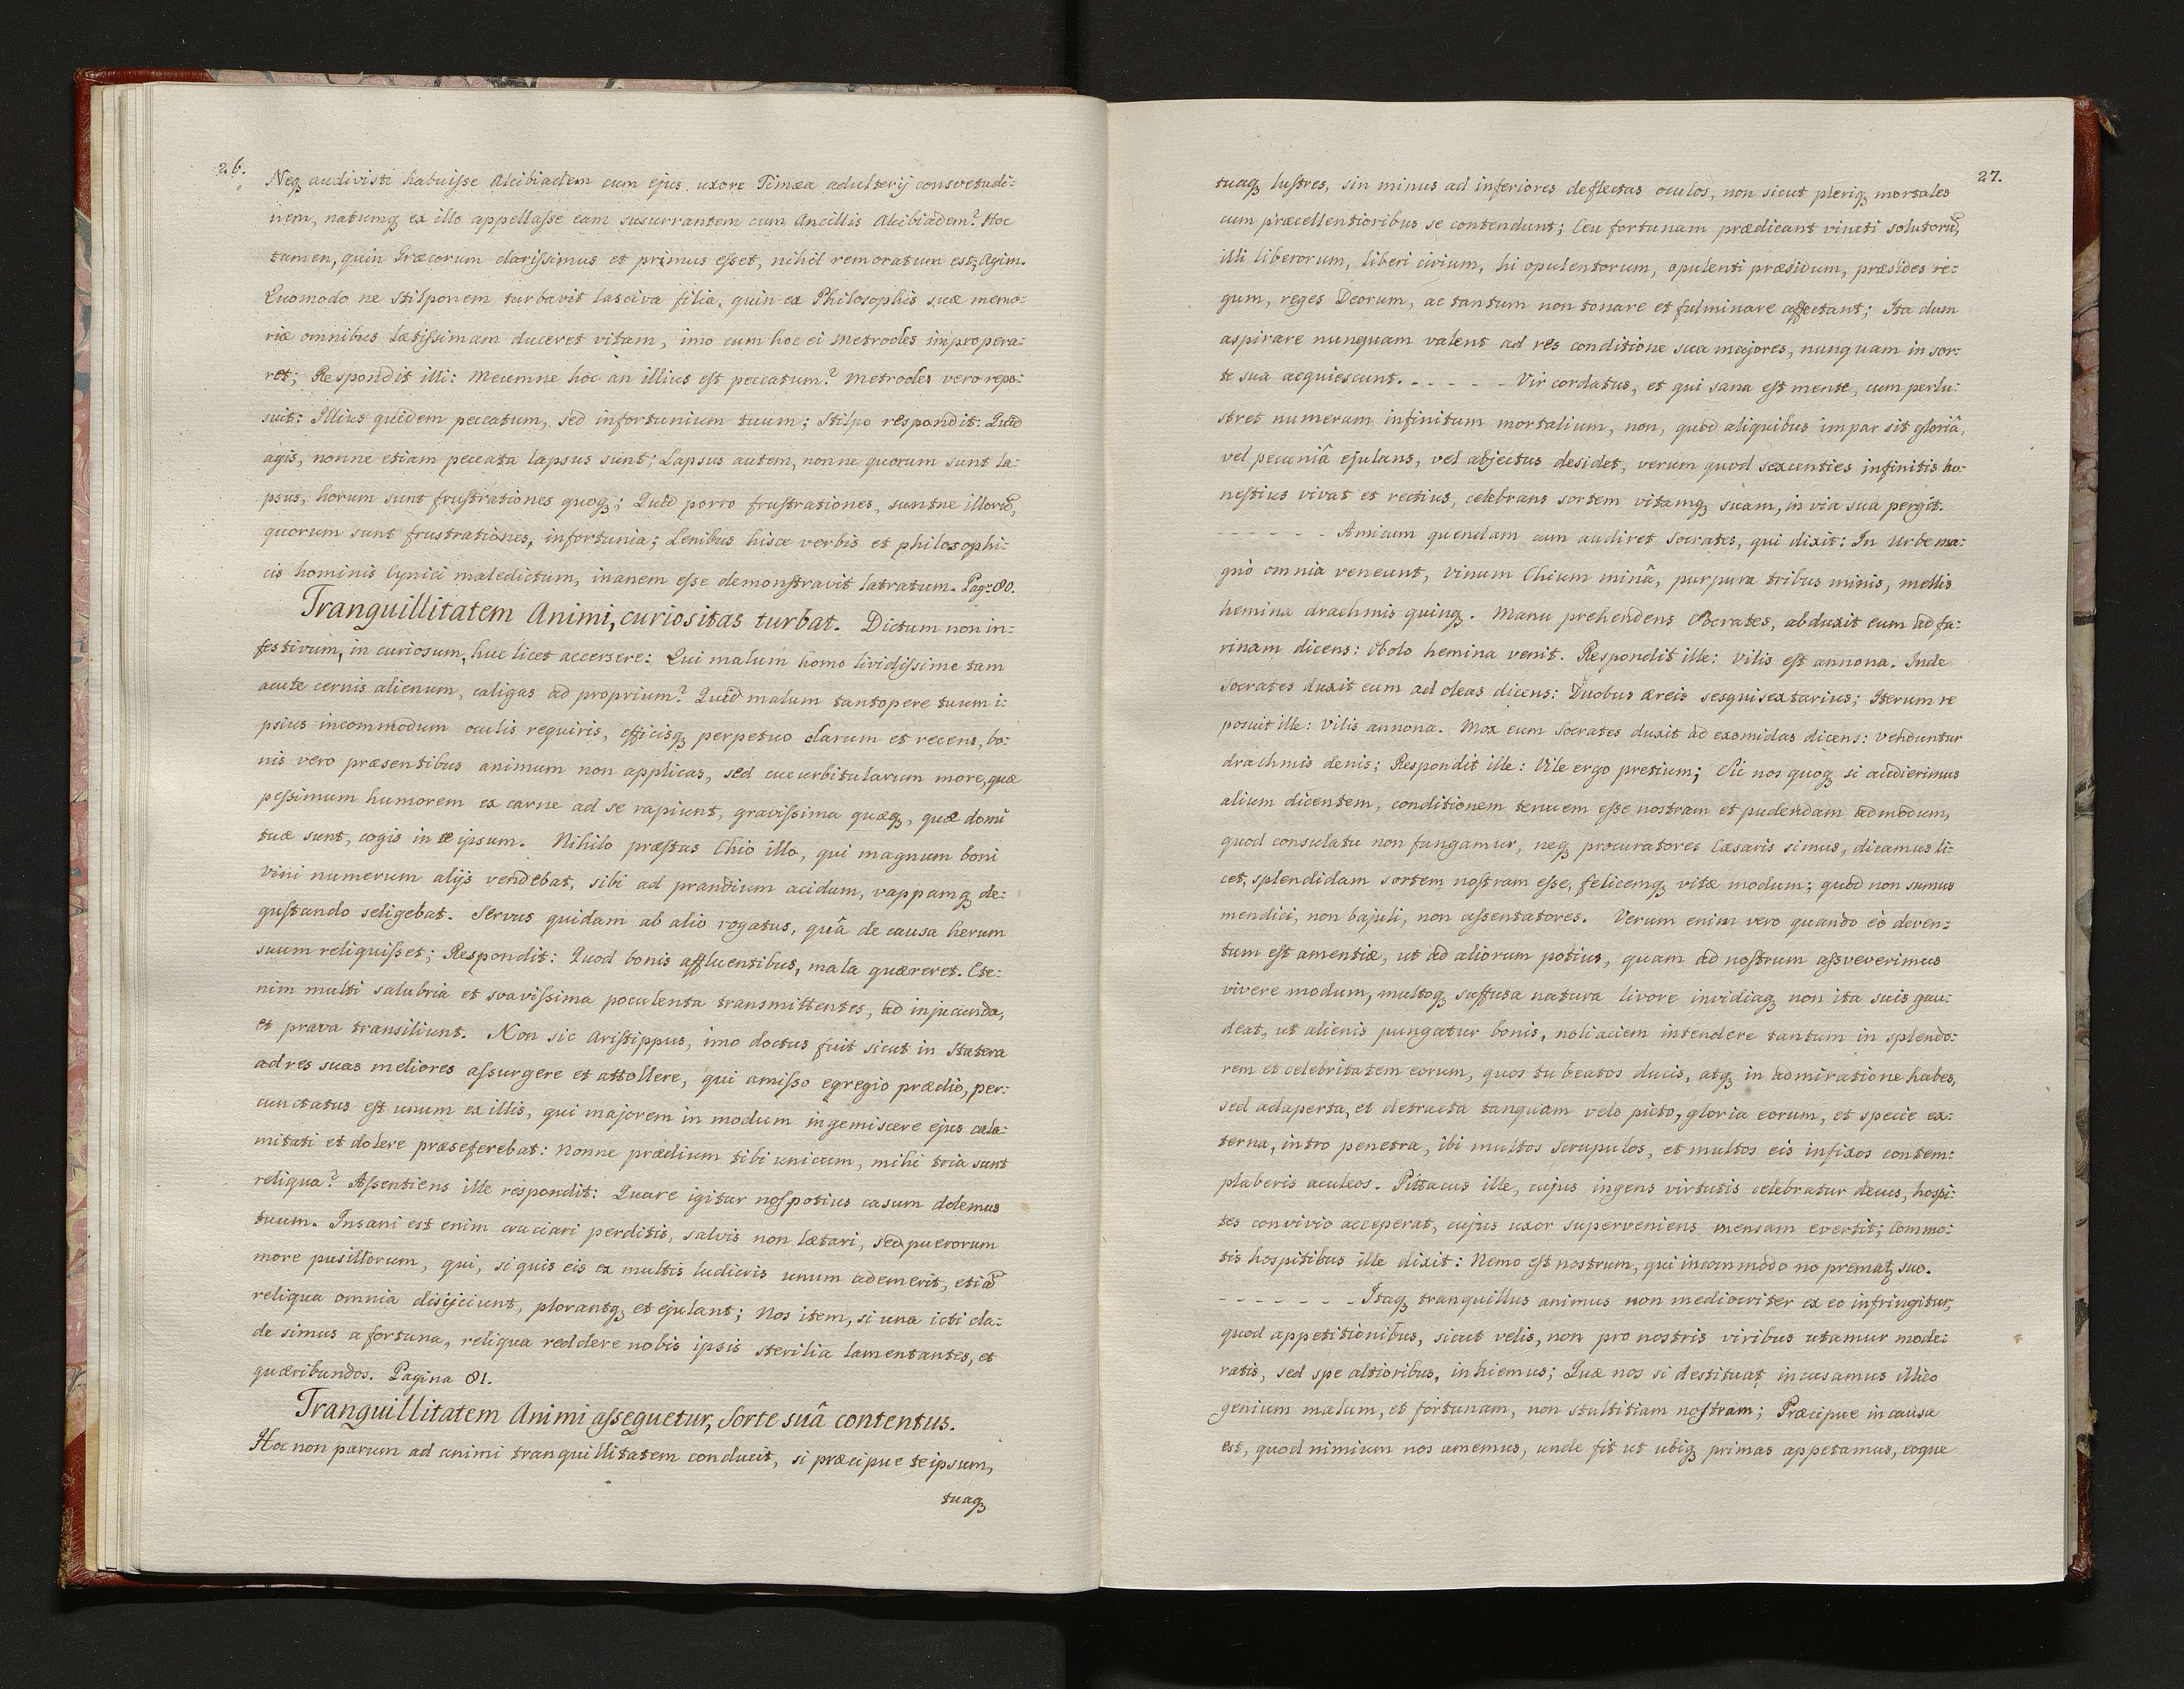 26.
Neq₃ audivisti habuiſse Alcibiadem cum ejus uxore Timæa adulterij consvetudi:
nem, natumq₃ ex illo appellaſse eam susurrantem cum Ancillis Alcibiadem? Hoc
tamen, quin Græcorum clariſsimus et primus eſset, nihil remoratum est, Agim.
Quomodo ne Stilponem turbavit lasciva filia, quin ex Philosophis suæ memo:
riæ omnibus lætiſsimam duceret vitam, imo cum hoc ei Metrocles impropera:
ret; Respondit illi: Meumne hoc an illius eſt peccatum? Metrocles vero repo:
suit: Illius quidem peccatum, sed infortunium tuum; Stilpo respondit: Quid
agis, nonne etiam peccata lapsus sunt; Lapsus autem, nonne quorum sunt la:
psus, horum sunt fruſtrationes quoq₃; Quid porro fruſtrationes, suntne illorū,
quorum sunt frustrationes, infortunia; Lenibus hisce verbis et philosophi:
cis hominis Cynici maledictum, inanem eſse demonſtravit latratum. Pag: 80.
Tranquillitatem Animi, curiositas turbat. Dictum non in:
festivum, in curiosum, huc licet accersere: Qui malum homo lividiſsime tam
acute cernis alienum, caligas ad proprium? Quid malum tantopere tuum i:
psius incommodum oculis requiris, efficisq₃ perpetuo clarum et recens, bo:
nis vero præsentibus animum non applicas, sed cucurbitularum more, quæ
peſsimum humorem ex carne ad se rapiunt, graviſsima quæq₃, quæ domi
tuæ sunt, cogis in te ipsum. Nihilo præſtas Chio illo, qui magnum boni
vini numerum alijs vendebat, sibi ad prandium acidum, vappamq₃ de:
guſtando seligebat. Servus quidam ab alio rogatus, quâ de causa herum
suum reliquiſset; Respondit: Quod bonis affluentibus, mala quæreret. Ete:
nim multi salubria et svaviſsima poculenta transmittentes, ad injucunda,
et prava transiliunt. Non sic Ariſtippus, imo doctus fuit sicut in Statera
ad res suas meliores aſsurgere et attollere, qui amiſso egregio prædio, per:
cunctatus eſt unum ex illis, qui majorem in modum ingemiscere ejus cala:
mitati et dolere præseferebat: Nonne prædium tibi unicum, mihi tria sunt
reliqua? Aſsentiens ille respondit: Quare igitur noſ potius casum dolemus
tuum. Insani est enim cruciari perditis, salvis non lætari, sed puerorum
more pusillorum, qui, si quis eis ex multis ludicris unum ademerit, etiā
reliqua omnia disijciunt, plorantq₃ et ejulant; Nos item, si una icti cla:
de simus a fortuna, reliqua reddere nobis ipsis sterilia lamentantes, et
quæribundos. Pagina 81.
Tranquillitatem Animi aſsequetur, Sorte suâ contentus.
Hoc non parum ad animi tranquillitatem conducit, si præcipue teipsum,
tuaq₃
27.
tuaq₃ luſtres, sin minus ad inferiores deflectas oculos, non sicut pleriq₃ mortales
cum præcellentioribus se contendunt; Ceu fortunam prædicant vincti solutorū,
illi liberorum, liberi civium, hi opulentorum, opulenti præsidum, præsides re:
gum, reges Deorum, ac tantum non tonare et fulminare affectant; Ita dum
aspirare nunquam valent ad res conditione sua majores, nunquam in sor:
te sua acquiescunt. - - - - - Vir cordatus, et qui sana eſt mente, cum perlu:
stret numerum infinitum mortalium, non, quod aliquibus impar sit gloriâ,
vel pecuniâ ejulans, vel abjectus desidet, verum quod sexcenties infinitis ho:
neſtius vivat et rectius, celebrans sortem vitamq₃ suam, in via sua pergit.
- - - - - - Amicum quendam cum audiret Socrates, qui dixit: In Urbe ma:
gno omnia veneunt, Vinum Chium minâ, purpura tribus minis, mellis
hemina drachmis quinq₃. Manu prehendens Socrates, abduxit eum ad fa:
rinam dicens: Obolo hemina venit. Respondit ille: Vilis eſt annona. Inde
Socrates duxit eum ad oleas dicens: Duobus æreis sesquisextarius; Iterum re
posuit ille: Vilis annona. Mox eum Socrates duxit ad exomidas dicens: Venduntur
drachmis denis; Respondit ille: Vile ergo pretium; Sic nos quoq₃ si audierimus
alium dicentem, conditionem tenuem eſse nostram et pudendam admodum,
quod consulatu non fungamur, neq₃ procuratores Cæsaris simus, dicamus li:
cet, splendidam sortem noſtram eſse, felicemq₃ vitæ modum; quod non sumus
mendici, non bajuli, non aſsentatores. Verum enim vero quando eò deven:
tum eſt amentiæ, ut ad aliorum potius, quam ad noſtrum aſsveverimus
vivere modum, multoq₃ suffusa natura livore invidiaq₃ non ita suis gau:
deat, ut alienis pungatur bonis, noli aciem intendere tantum in splendo:
rem et celebritatem eorum, quos tu beatos ducis, atq₃ in admiratione habes,
sed adaperta, et detracta tanquam velo picto, gloria eorum, et specie ex:
terna, intro penetra, ibi multos scrupulos, et multos eis infixos contem:
plaberis aculeos. Pittacus ille, cujus ingens virtutis celebratur decus, hospi:
tes convivio acceperat, cujus uxor superveniens mensam evertit; Commo:
tis hospitibus ille dixit: Nemo eſt nostrum, qui incommodo no premat₃ suo.
- - - - - - - Itaq₃ tranquillus animus non mediocriter ex eo infringitur,
quod appetitionibus, sicut velis, non pro nostris viribus utamur mode:
ratis, sed spe altioribus, inhiemus; Quæ nos si destituat incusamus illico
genium malum, et fortunam, non stultitiam noſtram; Præcipue in causa
est, quod nimium nos amemus, unde fit ut ubiq₃ primas appetamus, eoque